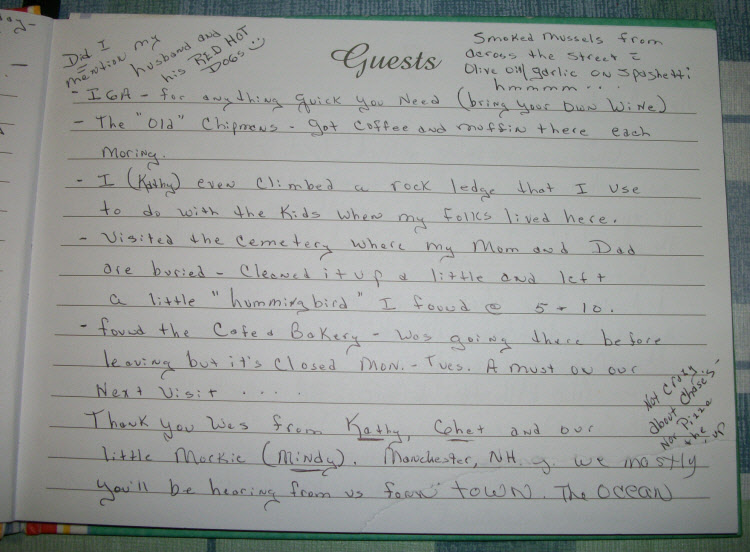 Did I
mention my
husband and
his RED HOT
DOGS
Guests
Smoked Mussels from
across the street c
Olive oil/garlic on spaghetti
hmmmm...
- IGA - for anything quick you need (bring your own wine)
- The "Old" Chipmans - got coffee and muffin there each
moring.
- I (Kathy) even climbed a rock ledge that I use
to do with the kids when my folks lived here.
- Visited the cemetery where my Mom and Dad
are buried - Cleaned it up a little and left
a little "hummingbird" I found @ 5 + 10.
- found the Cafe & Bakery - was going there before
leaving but it's closed Mon. - Tues. A must on our
Next visit ....
Not crazy
about Chase's -
Nor Pizza
the up
Thank you was from Kathy, Chet and our
little Morkie (Mindy). Manchester, NH. we mostly
you'll be hearing from us town. The ocean